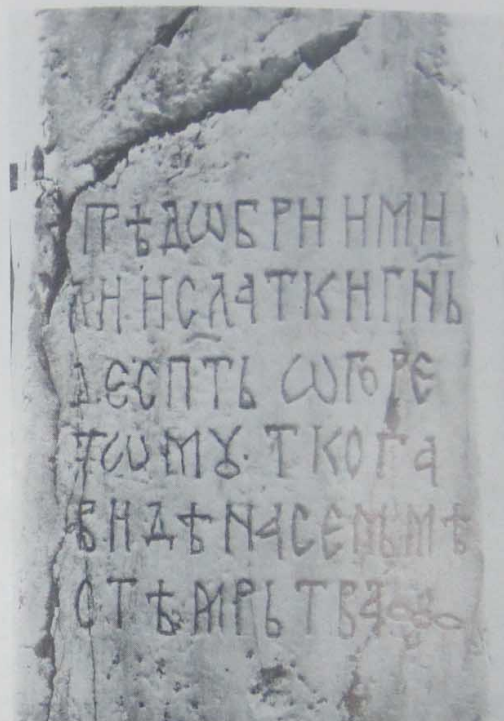 ПРѢДѠБРИ И МИ
ЛИ· И СЛАТКИ Г҃НЬ
ДЕСП҃ТЬ Ѡ ГОРЕ
ТѠМꙊ· ТКО ГА
ВИДѢ НА СЕМЬ МѢ
СТѢ МРЬТВА